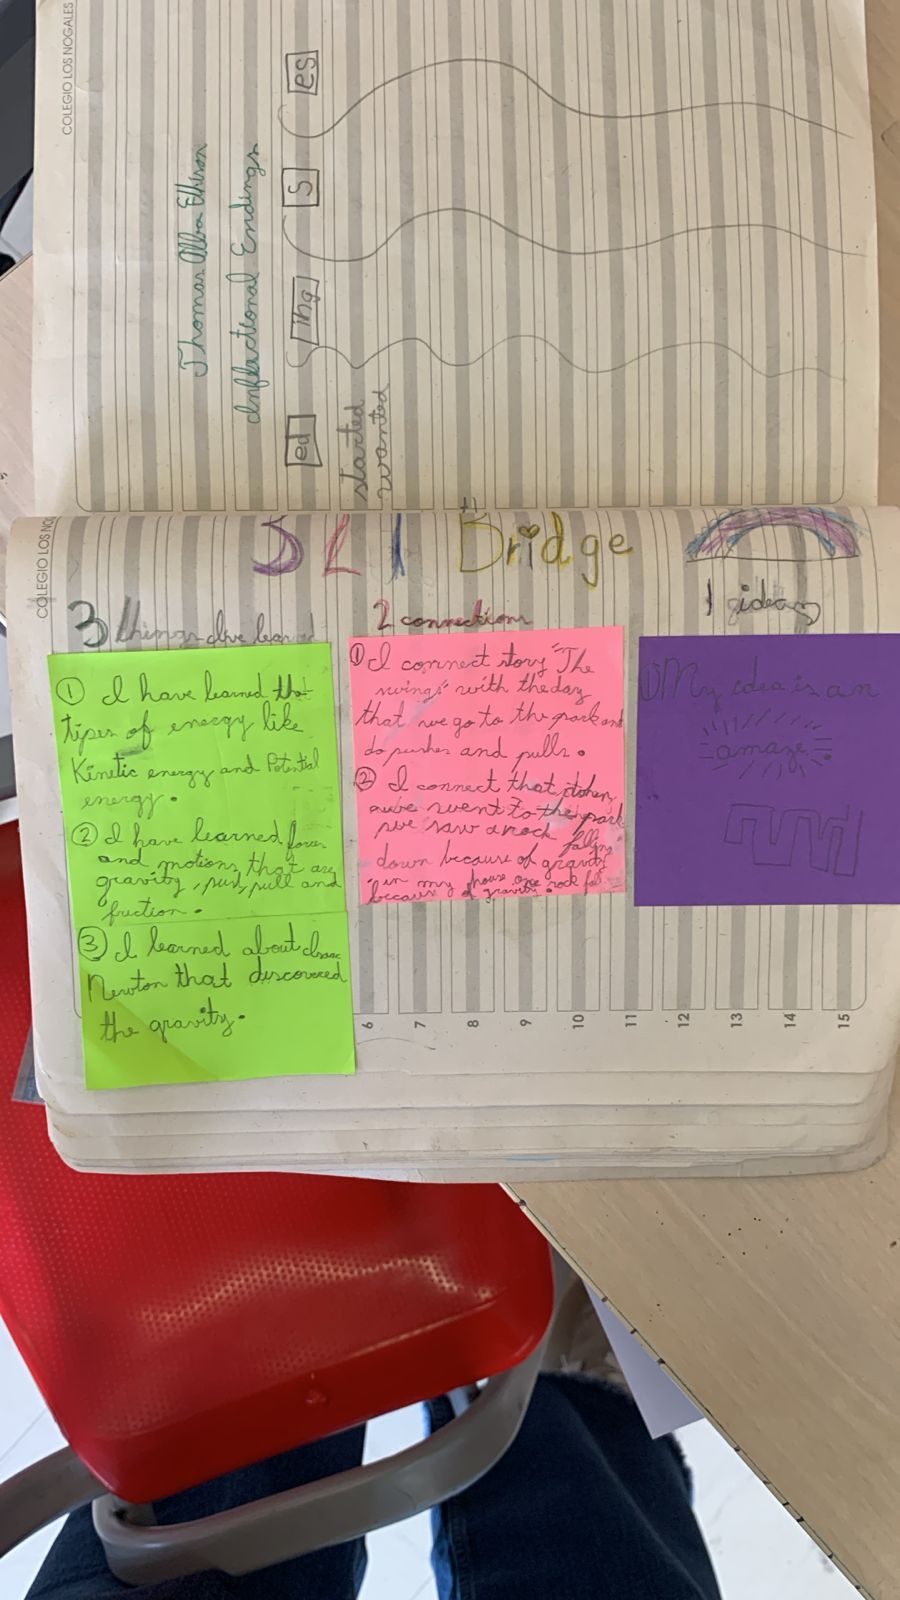 COLEGIO LOS NOGALES
Thomas Alba Edison
Inflectional Endings
ed
ing
s
es
started
wanted
COLEGIO LOS NO
3 2 1 Bridge
3 things I've learned
① I have learned that
tipes of energy like
Kinetic energy and Potential
energy.
② I have learned forces
and motions that are
gravity, push, pull and
friction.
③ I learned about Isaac
Newton that discovered
the gravity.
2 connections
① I connect story "The
swings" with the day
that we go to the park and
do pushes and pulls.
② I connect that
we went to the park
we saw a rock falling
down because of gravity
in my house one rock fall
because of gravity.
1 idea
① My idea is an
amaze
6
7
8
9
10
11
12
13
14
15